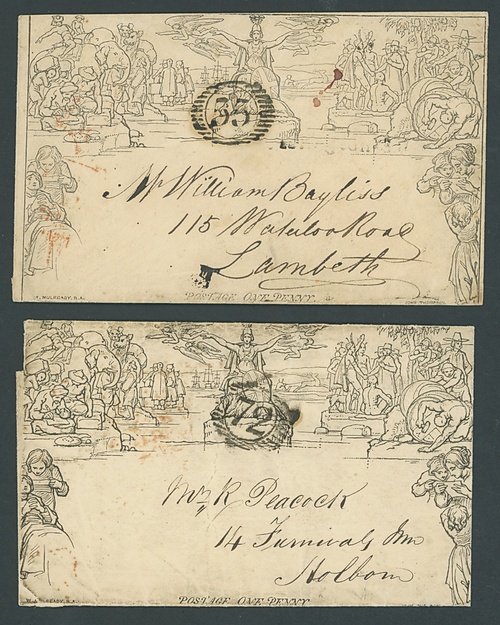 33
Mr William Bayliss
115 Waterloo Road
Lambeth
W. MULREADY, R.A.
POSTAGE ONE PENNY.
JOHN THOMPSON
Mr R Peacock
14 Furnivals Inn
Holborn
POSTAGE ONE PENNY